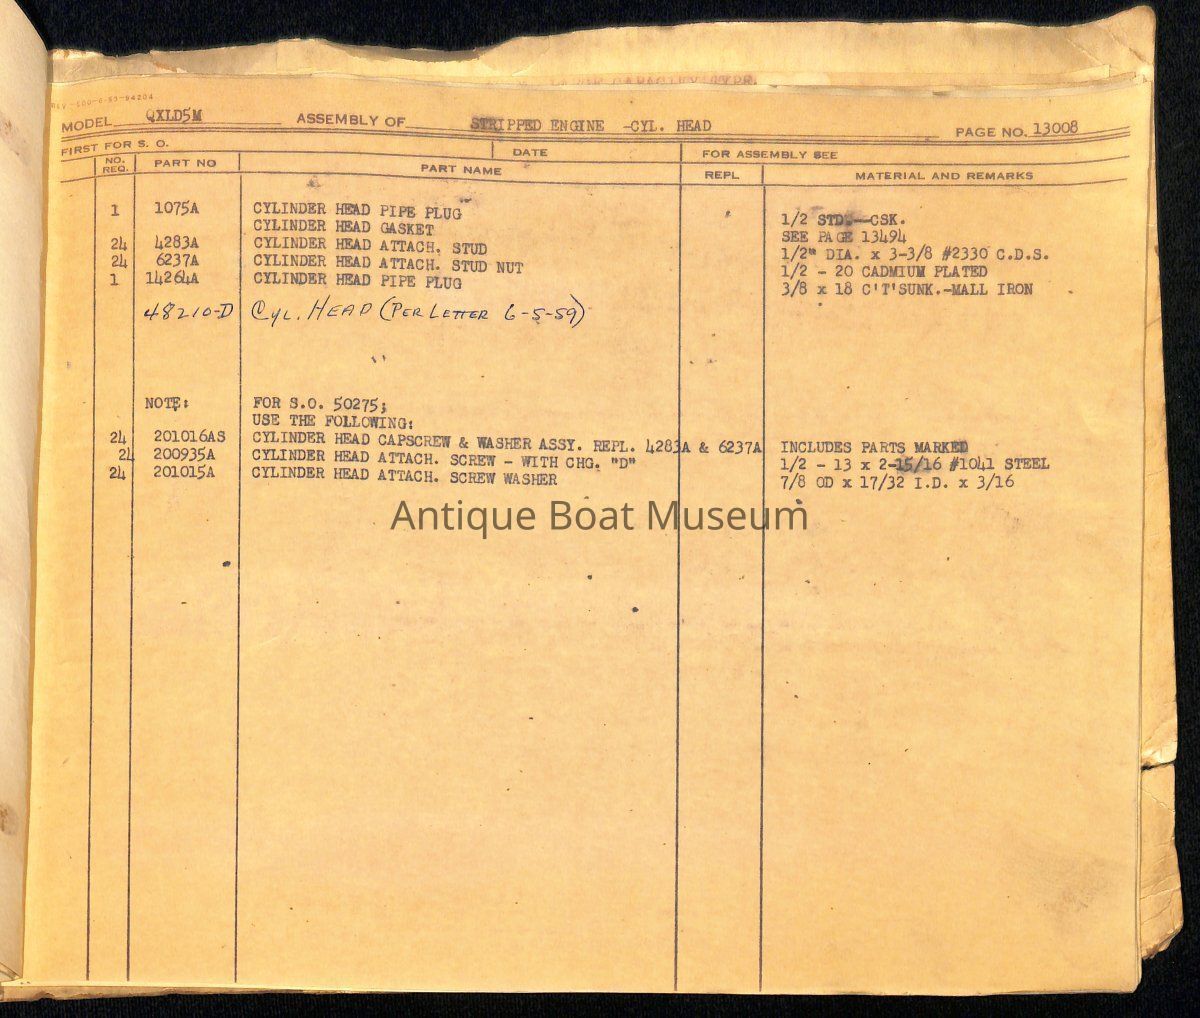 REV-100-6-53-94204
MODEL QXLD5M ASSEMBLY OF STRIPPED ENGINE -CYL. HEAD PAGE NO. 13008
FIRST FOR S. O. DATE FOR ASSEMBLY SEE
NO. REQ. PART NO PART NAME REPL MATERIAL AND REMARKS
1 1075A CYLINDER HEAD PIPE PLUG 1/2 STD.-CSK.
CYLINDER HEAD GASKET SEE PAGE 13494
24 4283A CYLINDER HEAD ATTACH. STUD 1/2" DIA. x 3-3/8 #2330 C.D.S.
24 6237A CYLINDER HEAD ATTACH. STUD NUT 1/2 - 20 CADMIUM PLATED
1 14264A CYLINDER HEAD PIPE PLUG 3/8 x 18 C'T'SUNK.-MALL IRON
48210-D Cyl. HEAD (PER LETTER 6-5-59)
NOTE: FOR S.O. 50275;
USE THE FOLLOWING:
24 201016AS CYLINDER HEAD CAPSCREW & WASHER ASSY. REPL. 4283A & 6237A INCLUDES PARTS MARKED
24 200935A CYLINDER HEAD ATTACH. SCREW - WITH CHG. "D" 1/2 - 13 x 2-15/16 #1041 STEEL
24 201015A CYLINDER HEAD ATTACH. SCREW WASHER 7/8 OD x 17/32 I.D. x 3/16
Antique Boat Museum